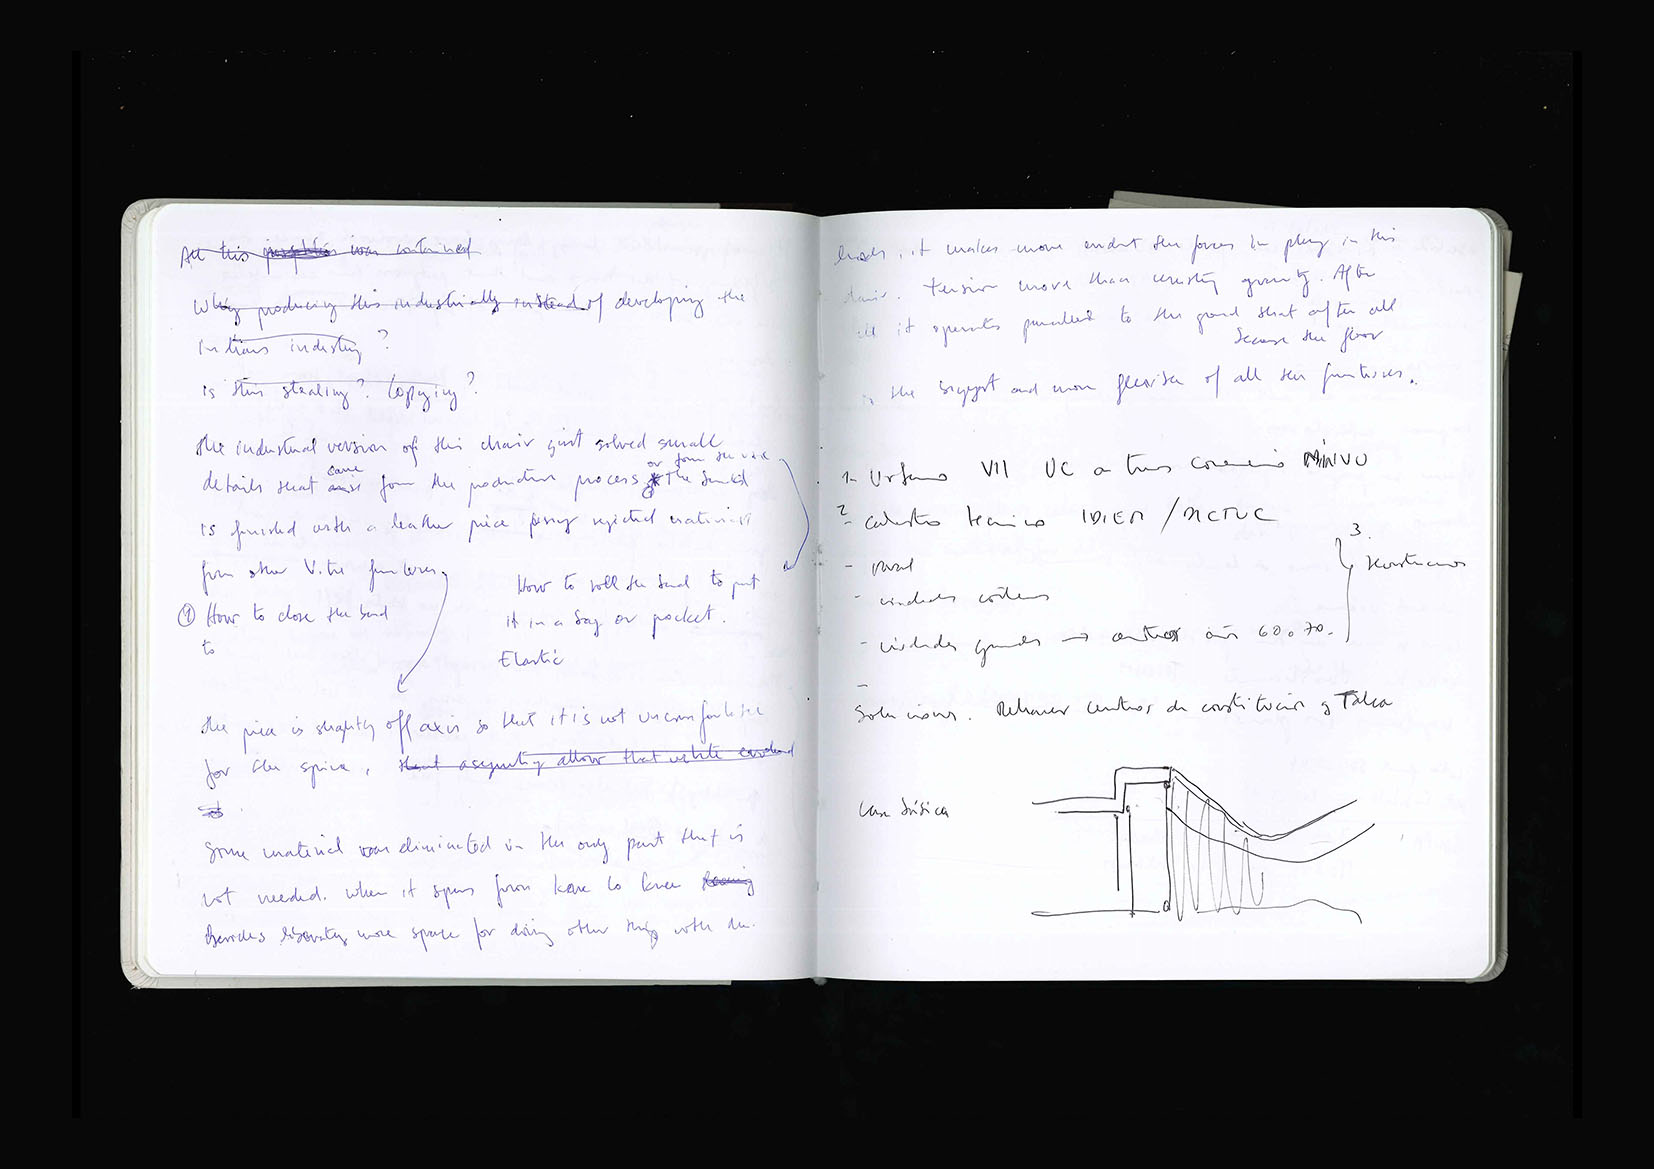 All this insights was contained
Why producing this industrially instead of developing the
Indians industry?
is this stealing? Copying?
the industrial version of this chair just solved small
or from the use
came
details that arise from the production process. The band
is finished with a leather piece using rejected materials
from other Vitra furniture.
How to roll the band to put
① How to close the band
it in a bag or pocket.
to
Elastic
the piece is slightly off axis so that it is not uncomfortable
for the spine, that asymmetry allow that white
Some material was eliminated in the only part that is
not needed. when it spans from knee to knee
Besides liberating more space for doing other things with the
hands, it makes more evident the forces in play in this
chair. tension more than resisting gravity. After
all it operates parallel to the ground that after all
because the floor
is the biggest and more flexible of all the furnitures.
1- Urbano VII UC a través convenio MINVU
2- catastro técnico IDIEM / DICTUC
3.
- rural
- viviendas costeras
- viviendas grandes → años 60 o 70.
-
Soluciones. Rehacer centros de constitución y Talca
Casa básica